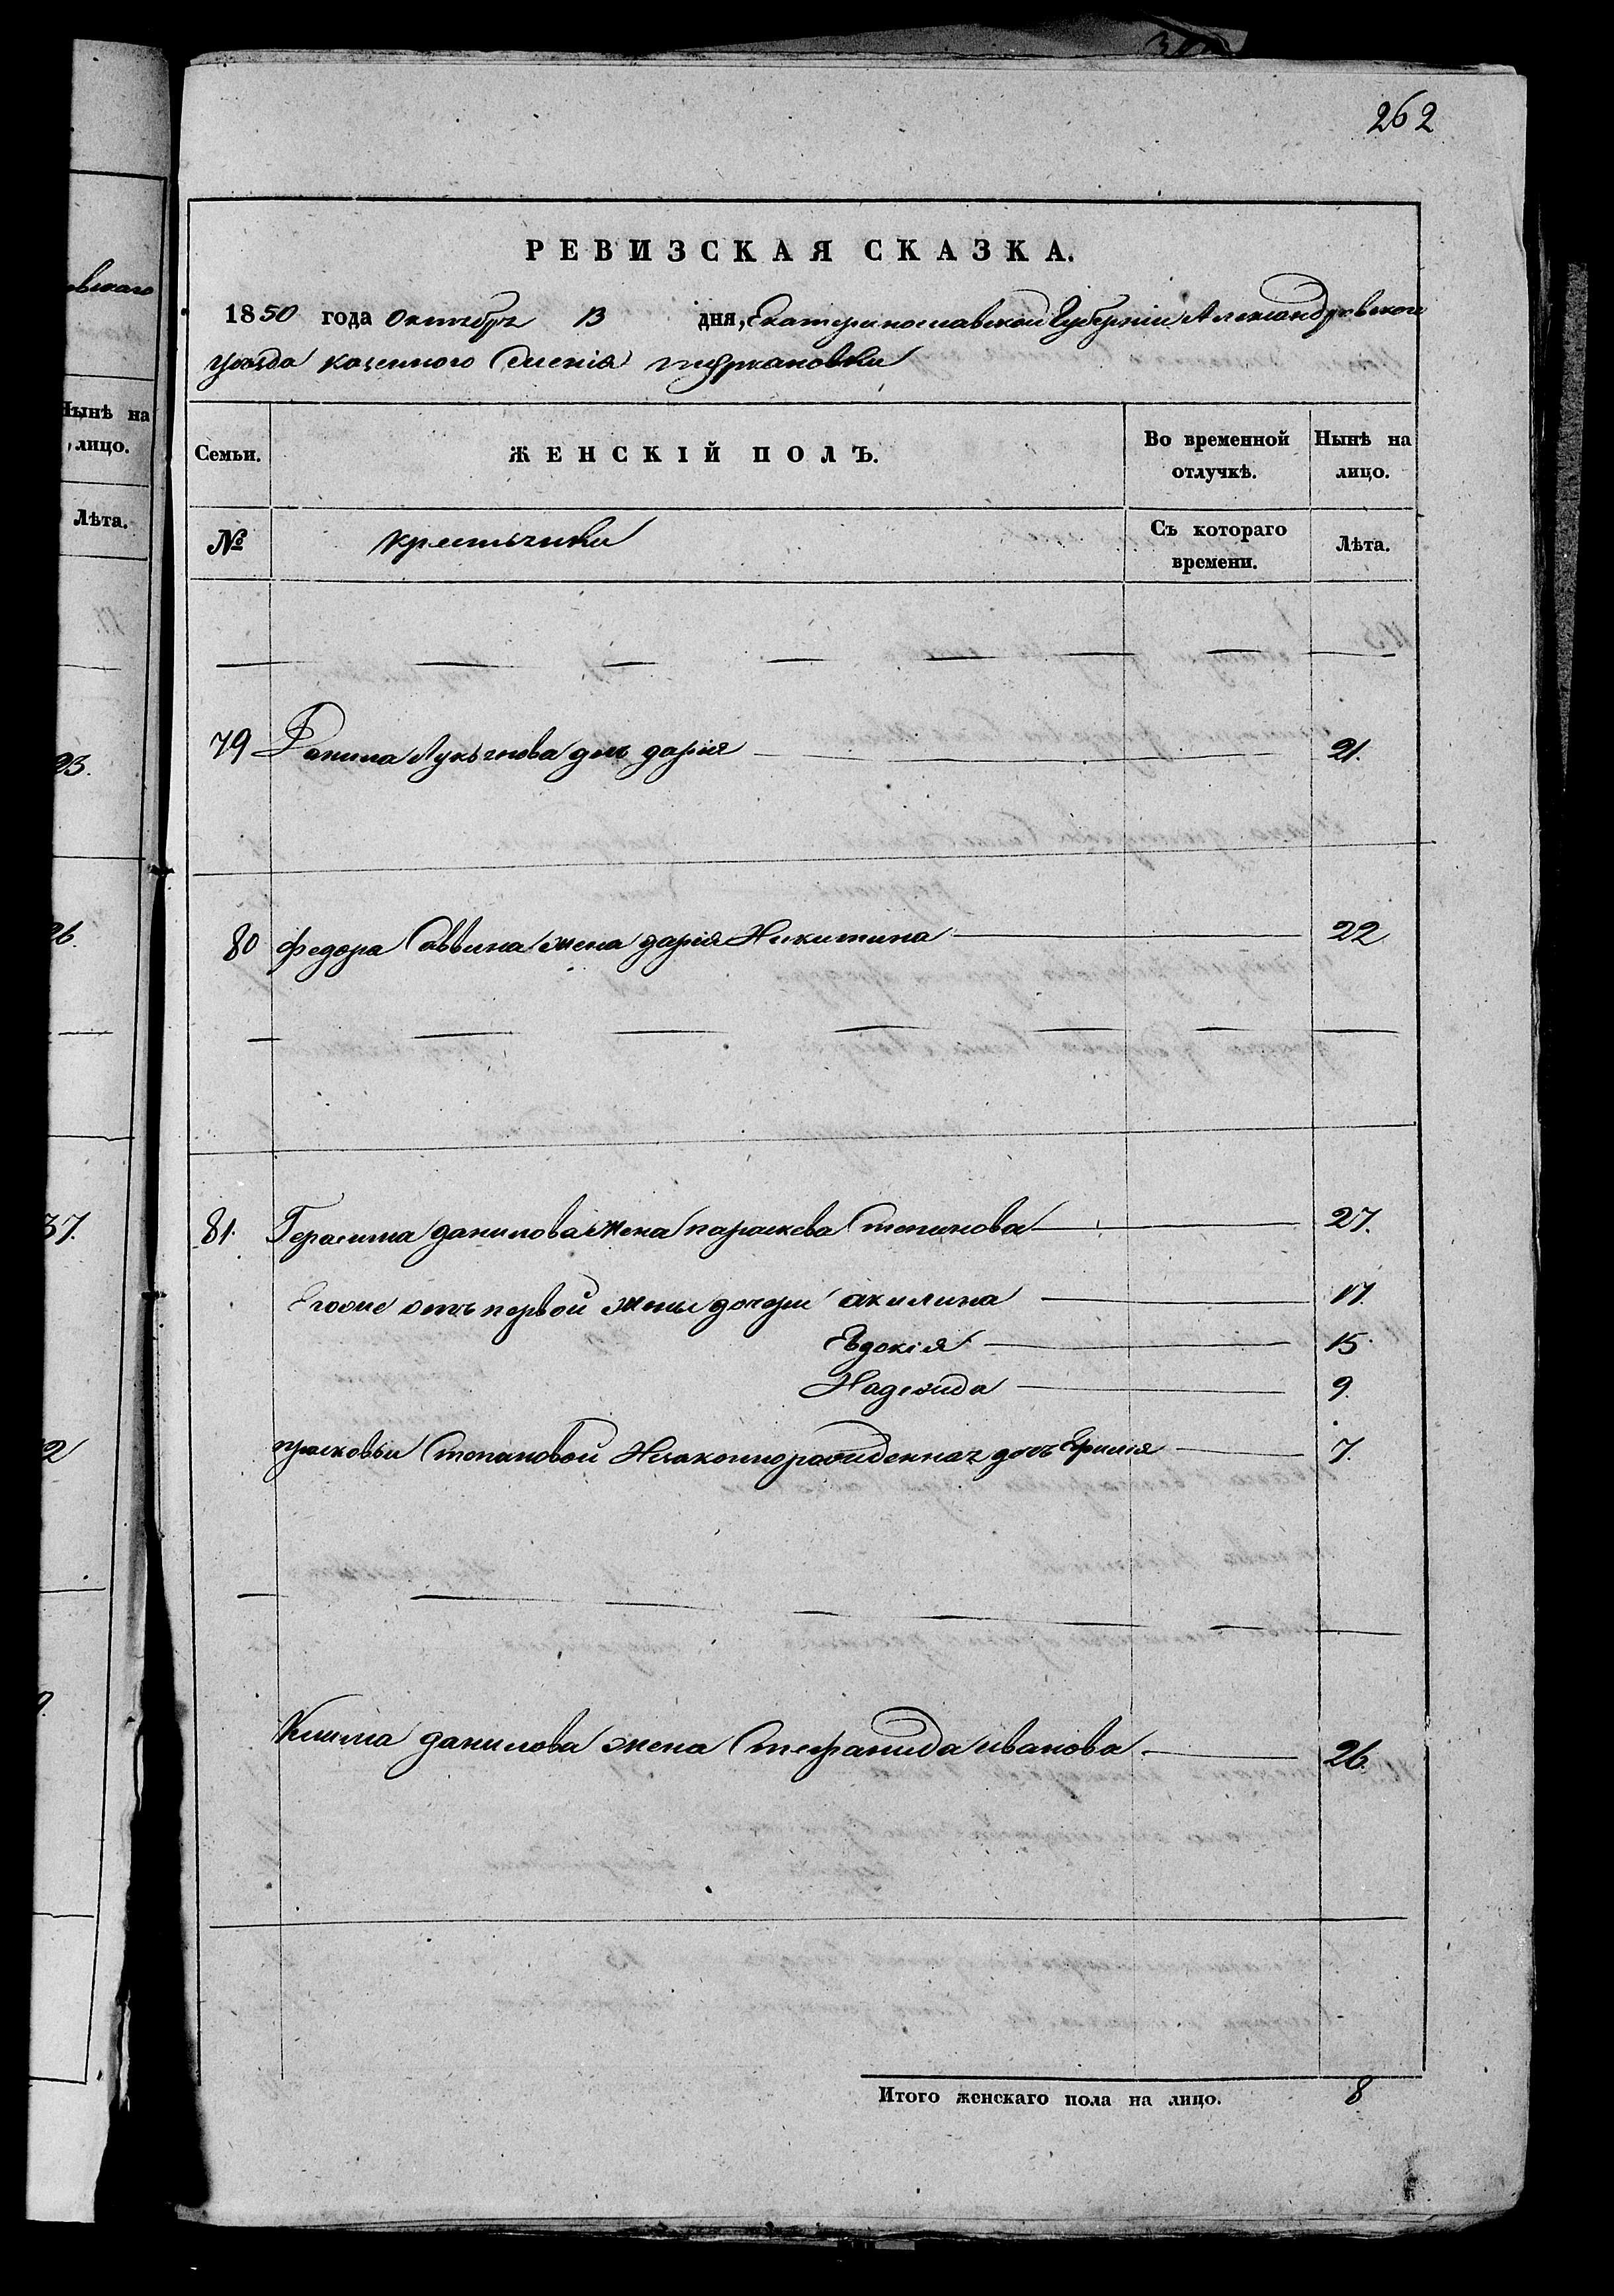 262
РЕВИЗСКАЯ СКАЗКА.
1850 года Октября 13 дня, Екатеринославской Губерніи Александровскаго
уѣзда казенного Селенія
Семьи. ЖЕНСКІЙ ПОЛЪ. Во временной отлучкѣ. Нынѣ на лицо.
№ крестьянки Съ котораго времени. Лѣта.
79 Данила Лукьянова дочь дарія 21.
80 федора Саввина жена дарія Никитина 22
81. Герасима данилова жена параскева степанова 27.
Егоже отъ первой жены дочери акилина 17.
Евдокія 15.
Надежида 9.
прасковьи Степановой Незаконнорожденная дочь 7.
Клима данилова жена Стефанида иванова 26.
Итого женскаго пола на лицо. 8
вскаго
Нынѣ на
лицо.
Лѣта.
23.
26.
37.
2